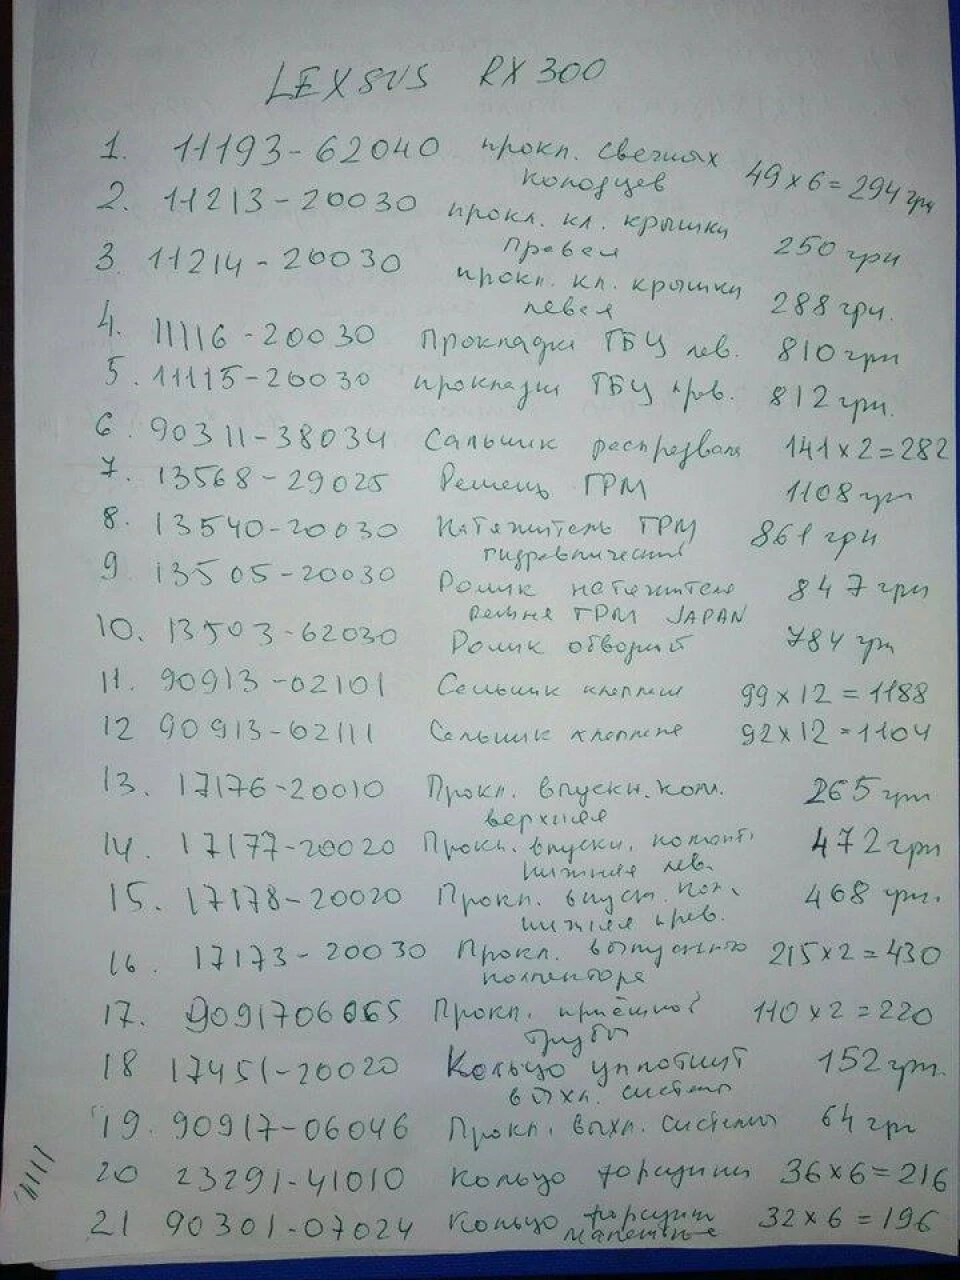 LEXSUS RX 300
1. 11193-62040 прокл. свечных колодцев 49x6=294грн
2. 11213-20030 прокл. кл. крышки правая 250 грн
3. 11214-20030 прокл. кл. крышки левая 288 грн.
4. 11116-20030 Прокладки ГБЦ лев. 810 грн
5. 11115-20030 прокладки ГБЦ прв. 812 грн.
6. 90311-38034 Сальник распредвала 141x2=282
7. 13568-29025 Ремень ГРМ 1108 грн
8. 13540-20030 Натяжитель ГРМ гидравлический 861 грн
9 13505-20030 Ролик натяжителя ремня ГРМ JAPAN 847 грн
10. 13503-62030 Ролик обводной 784 грн
11. 90913-02101 Сальник клапана 99x12=1188
12 90913-02111 Сальник клапана 92x12=1104
13. 17176-20010 Прокл. впускн. кол. верхняя 265 грн
14. 17177-20020 Прокл. впускн. нижняя лев. 472 грн
15. 17178-20020 Прокл. впуск. кол. нижняя прав. 468 грн.
16. 17173-20030 Прокл. выпускного коллектора 215x2=430
17. 9091706065 Прокл. приёмной трубы 110x2=220
18 17451-20020 Кольцо уплотнит выхл. системы 152 грн.
19. 90917-06046 Прокл. выхл. системы 64 грн
20 23291-41010 кольцо форсунки 36x6=216
21 90301-07024 кольцо форсунк маленькие 32x6=196